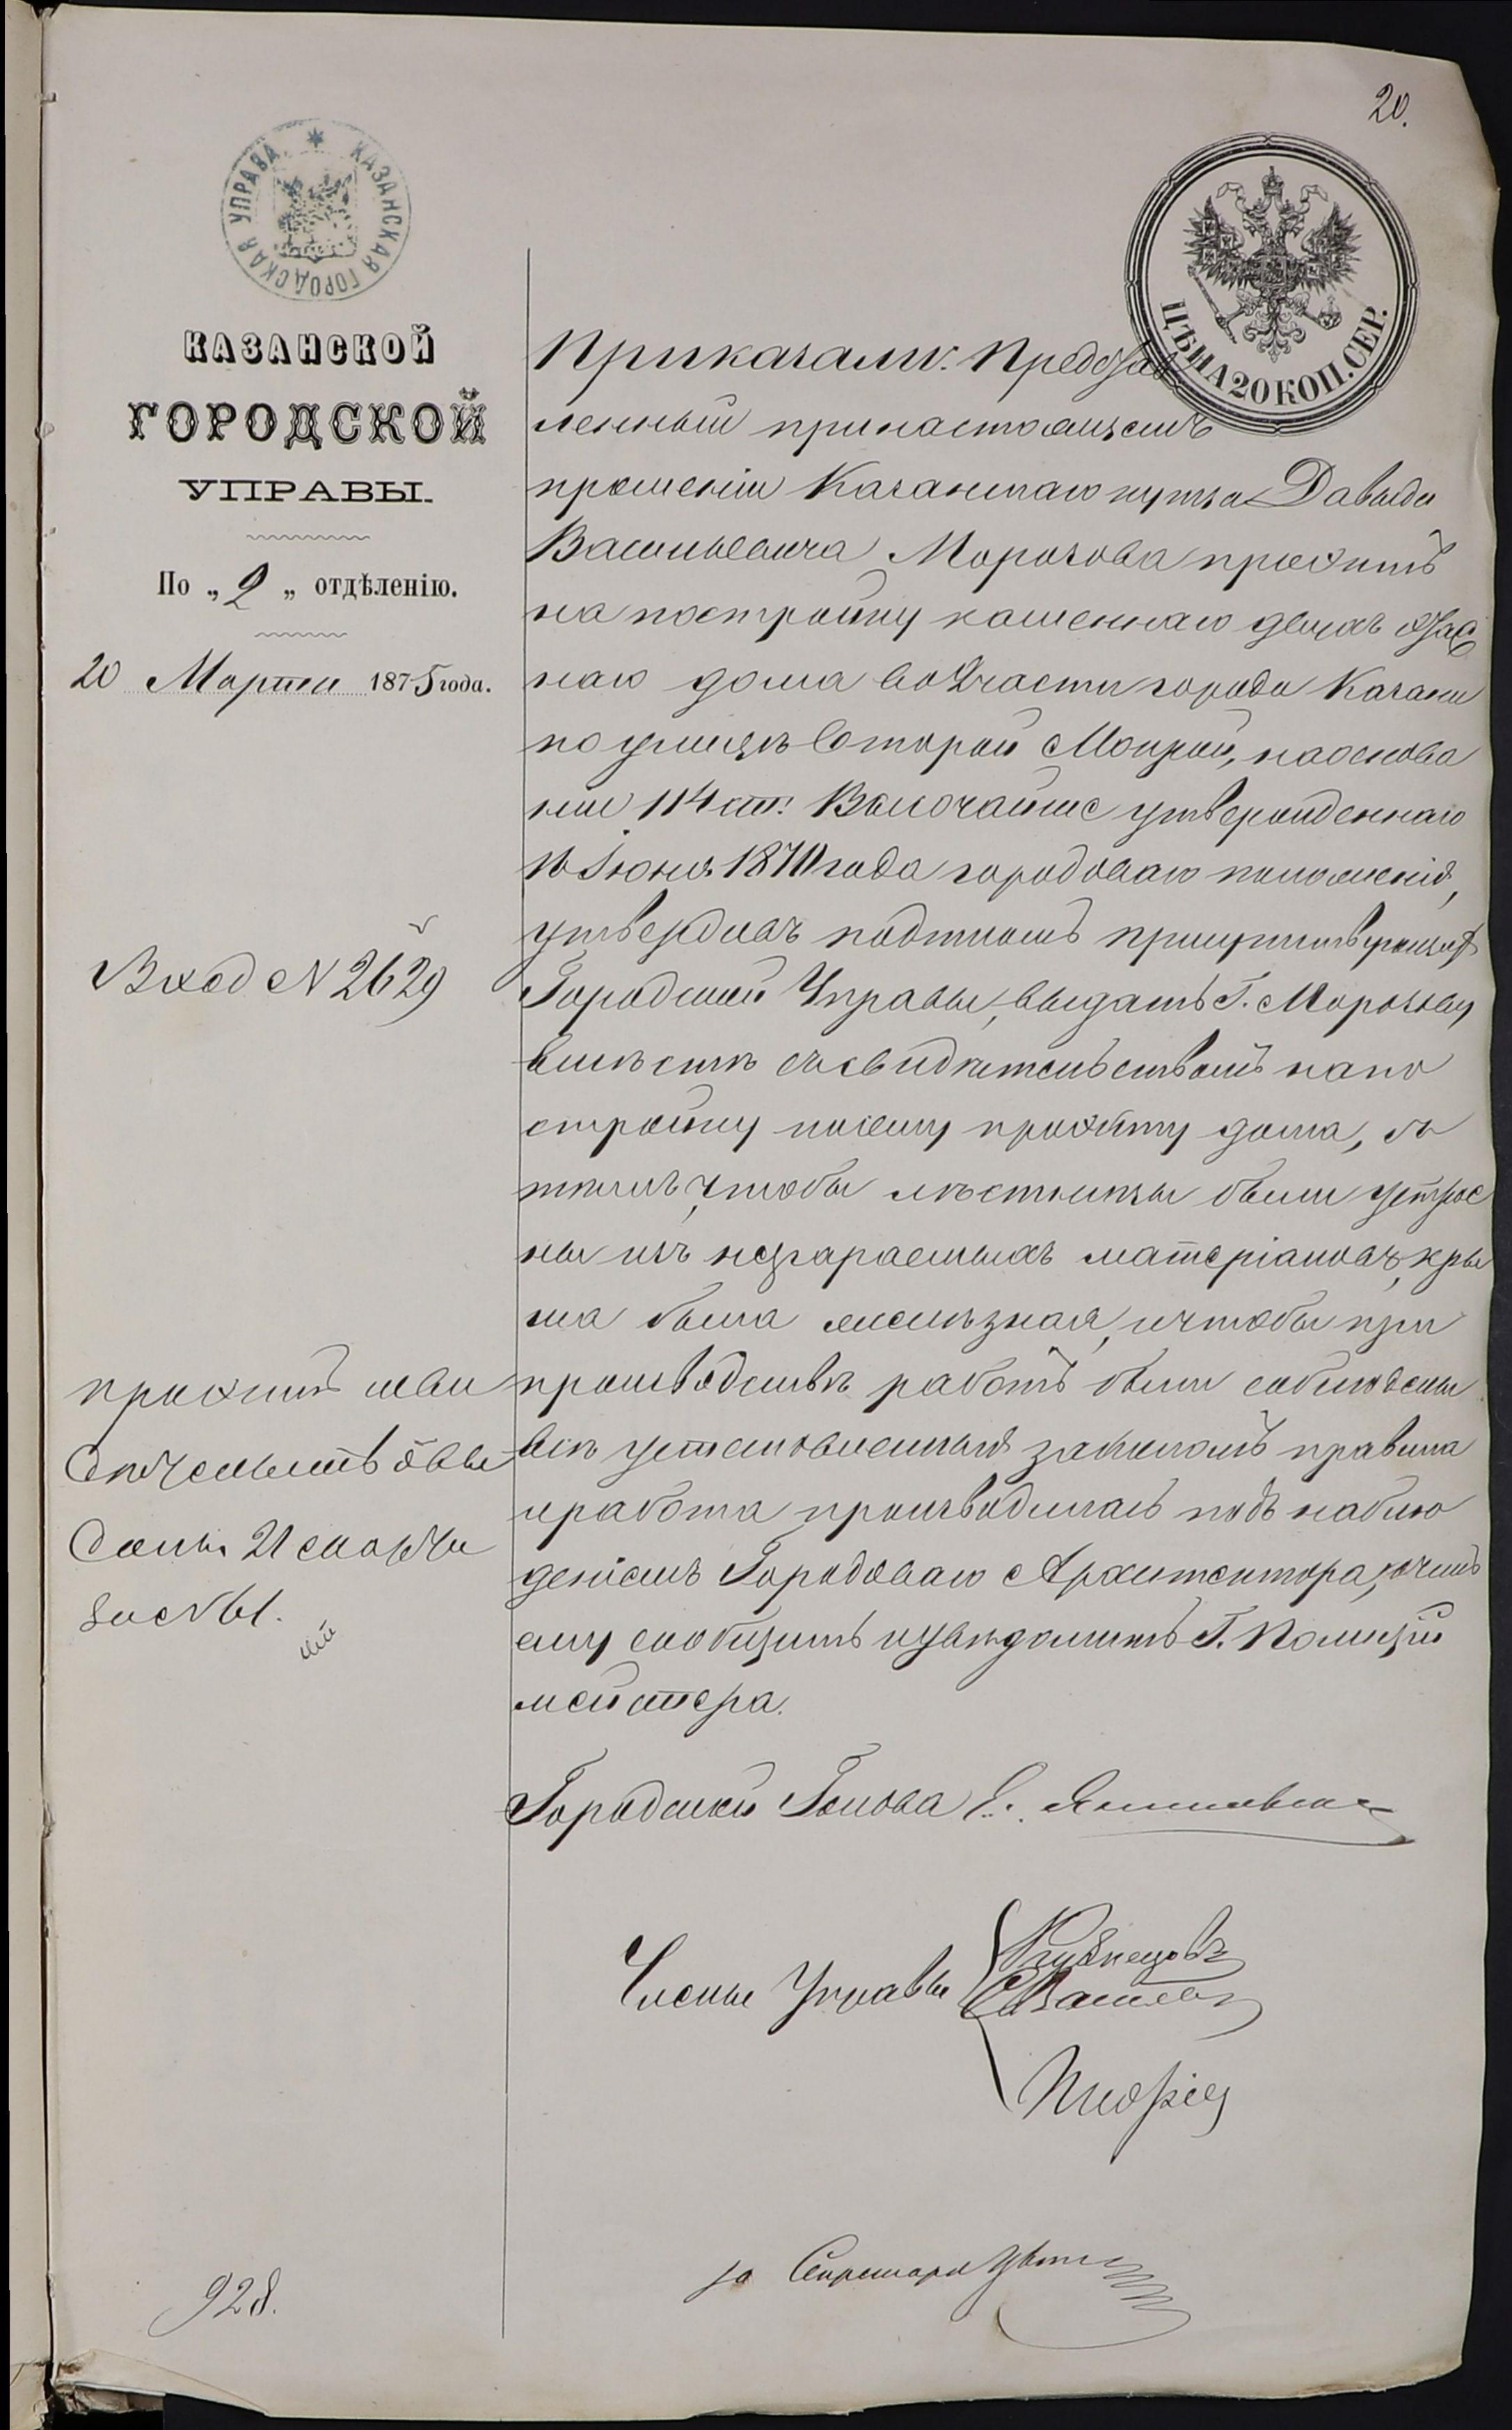 20.
КАЗАНСКАЯ ГОРОДСКАЯ УПРАВА
ЦѢНА 20 КОП. СЕР.
КАЗАНСКОЙ
ГОРОДСКОЙ
УПРАВЫ.
По „2„ отдѣленію.
20 Марта 1875 года.
Вход N 2629
проэктъ
21 марта
928.
Приказали: Представ
ленный при настоящемъ
прошеніи Казанскаго купца Давыда
Васильевича Морозова проэктъ
на постройку каменнаго двухъ этаж
наго дома во 2 части города Казани
по улицѣ Второй Мокрой, на основа
ніи 114 ст. Высочайше утвержденнаго
16 Іюня 1870 года городоваго положенія,
утвердивъ подписомъ присутствующихъ
Городской Управы, выдать Г. Морозову
вмѣстѣ съ свидѣтельствомъ на по
стройку по сему проэкту дома, съ
тѣмъ, чтобы лѣстницы были устрое
ны изъ несгараемыхъ матеріаловъ, кры
ша была желѣзная, и чтобы при
производствѣ работъ были соблюдены
всѣ установленныя закономъ правила
и работа производилась подъ наблю
деніемъ Городоваго Архитектора, о чемъ
ему сообщить и увѣдомить Г. Полицій
мейстера.
Городской Голова Е.
Члены Управы
Кузнецовъ
за Секретаря